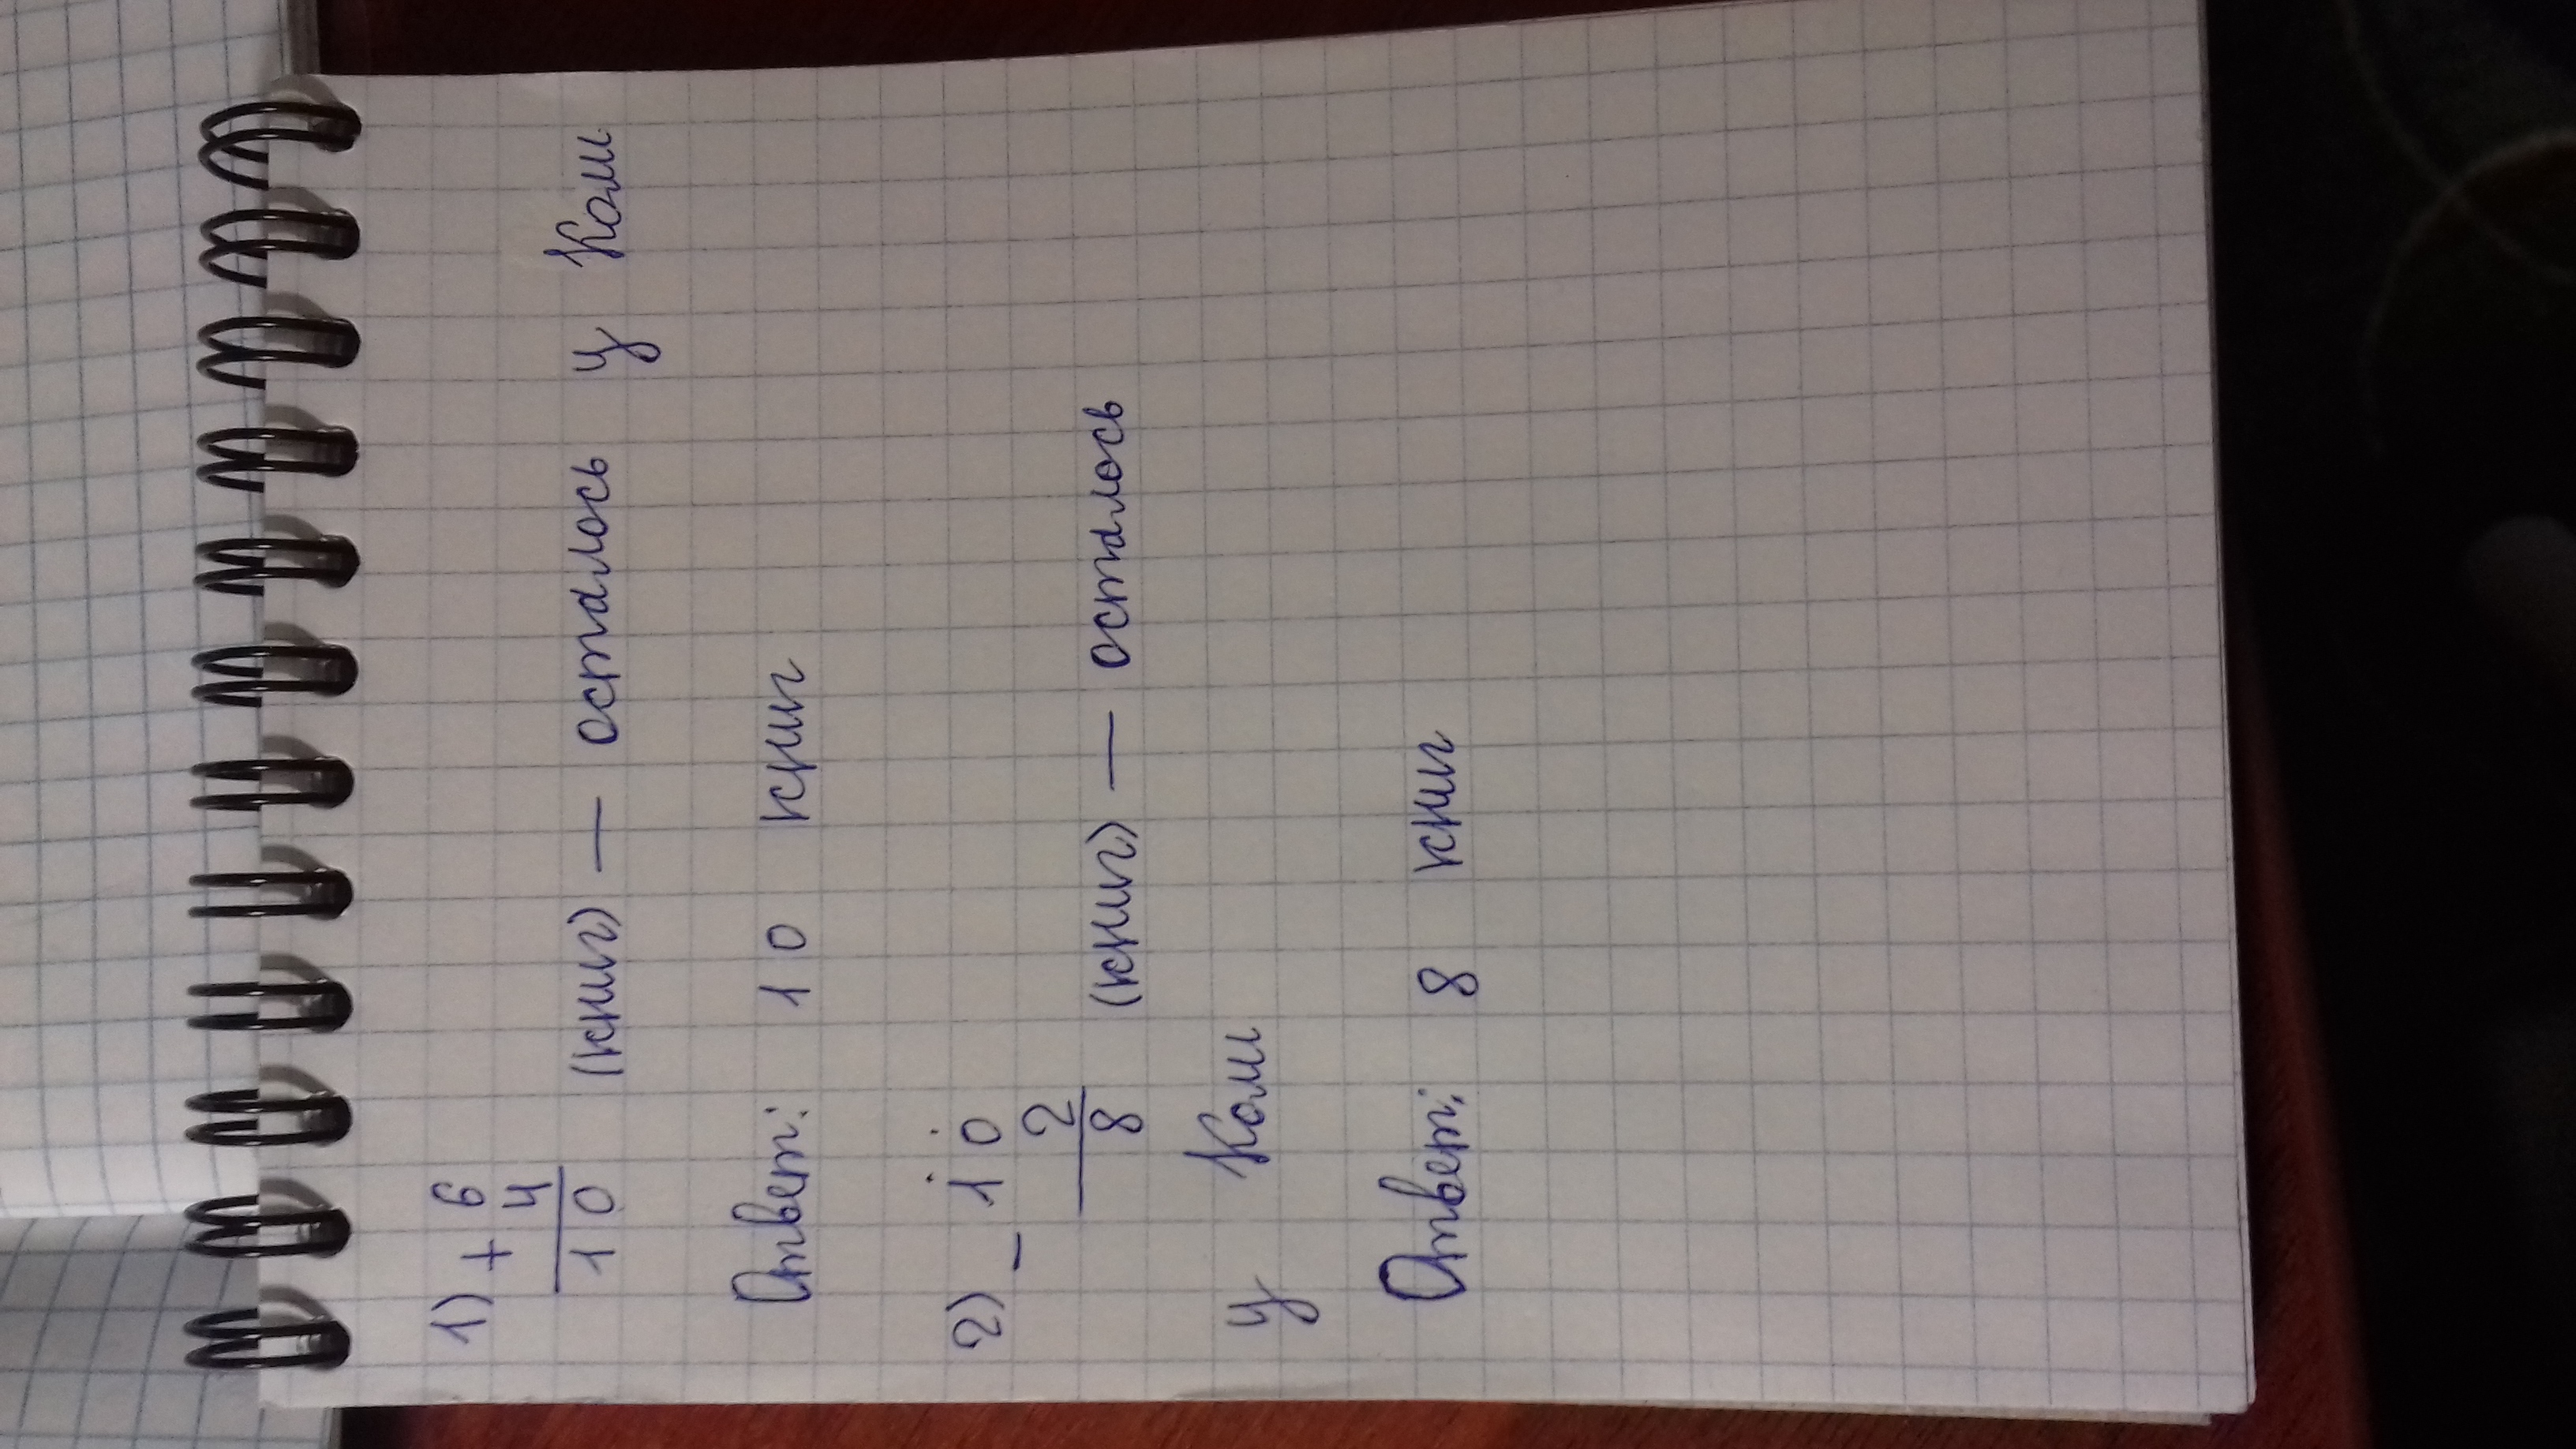 1) + 6
4
10 (книг) — осталось у Коли
Ответ: 10 книг
2) - 10
2
8 (книг) — осталось
у Коли
Ответ: 8 книг